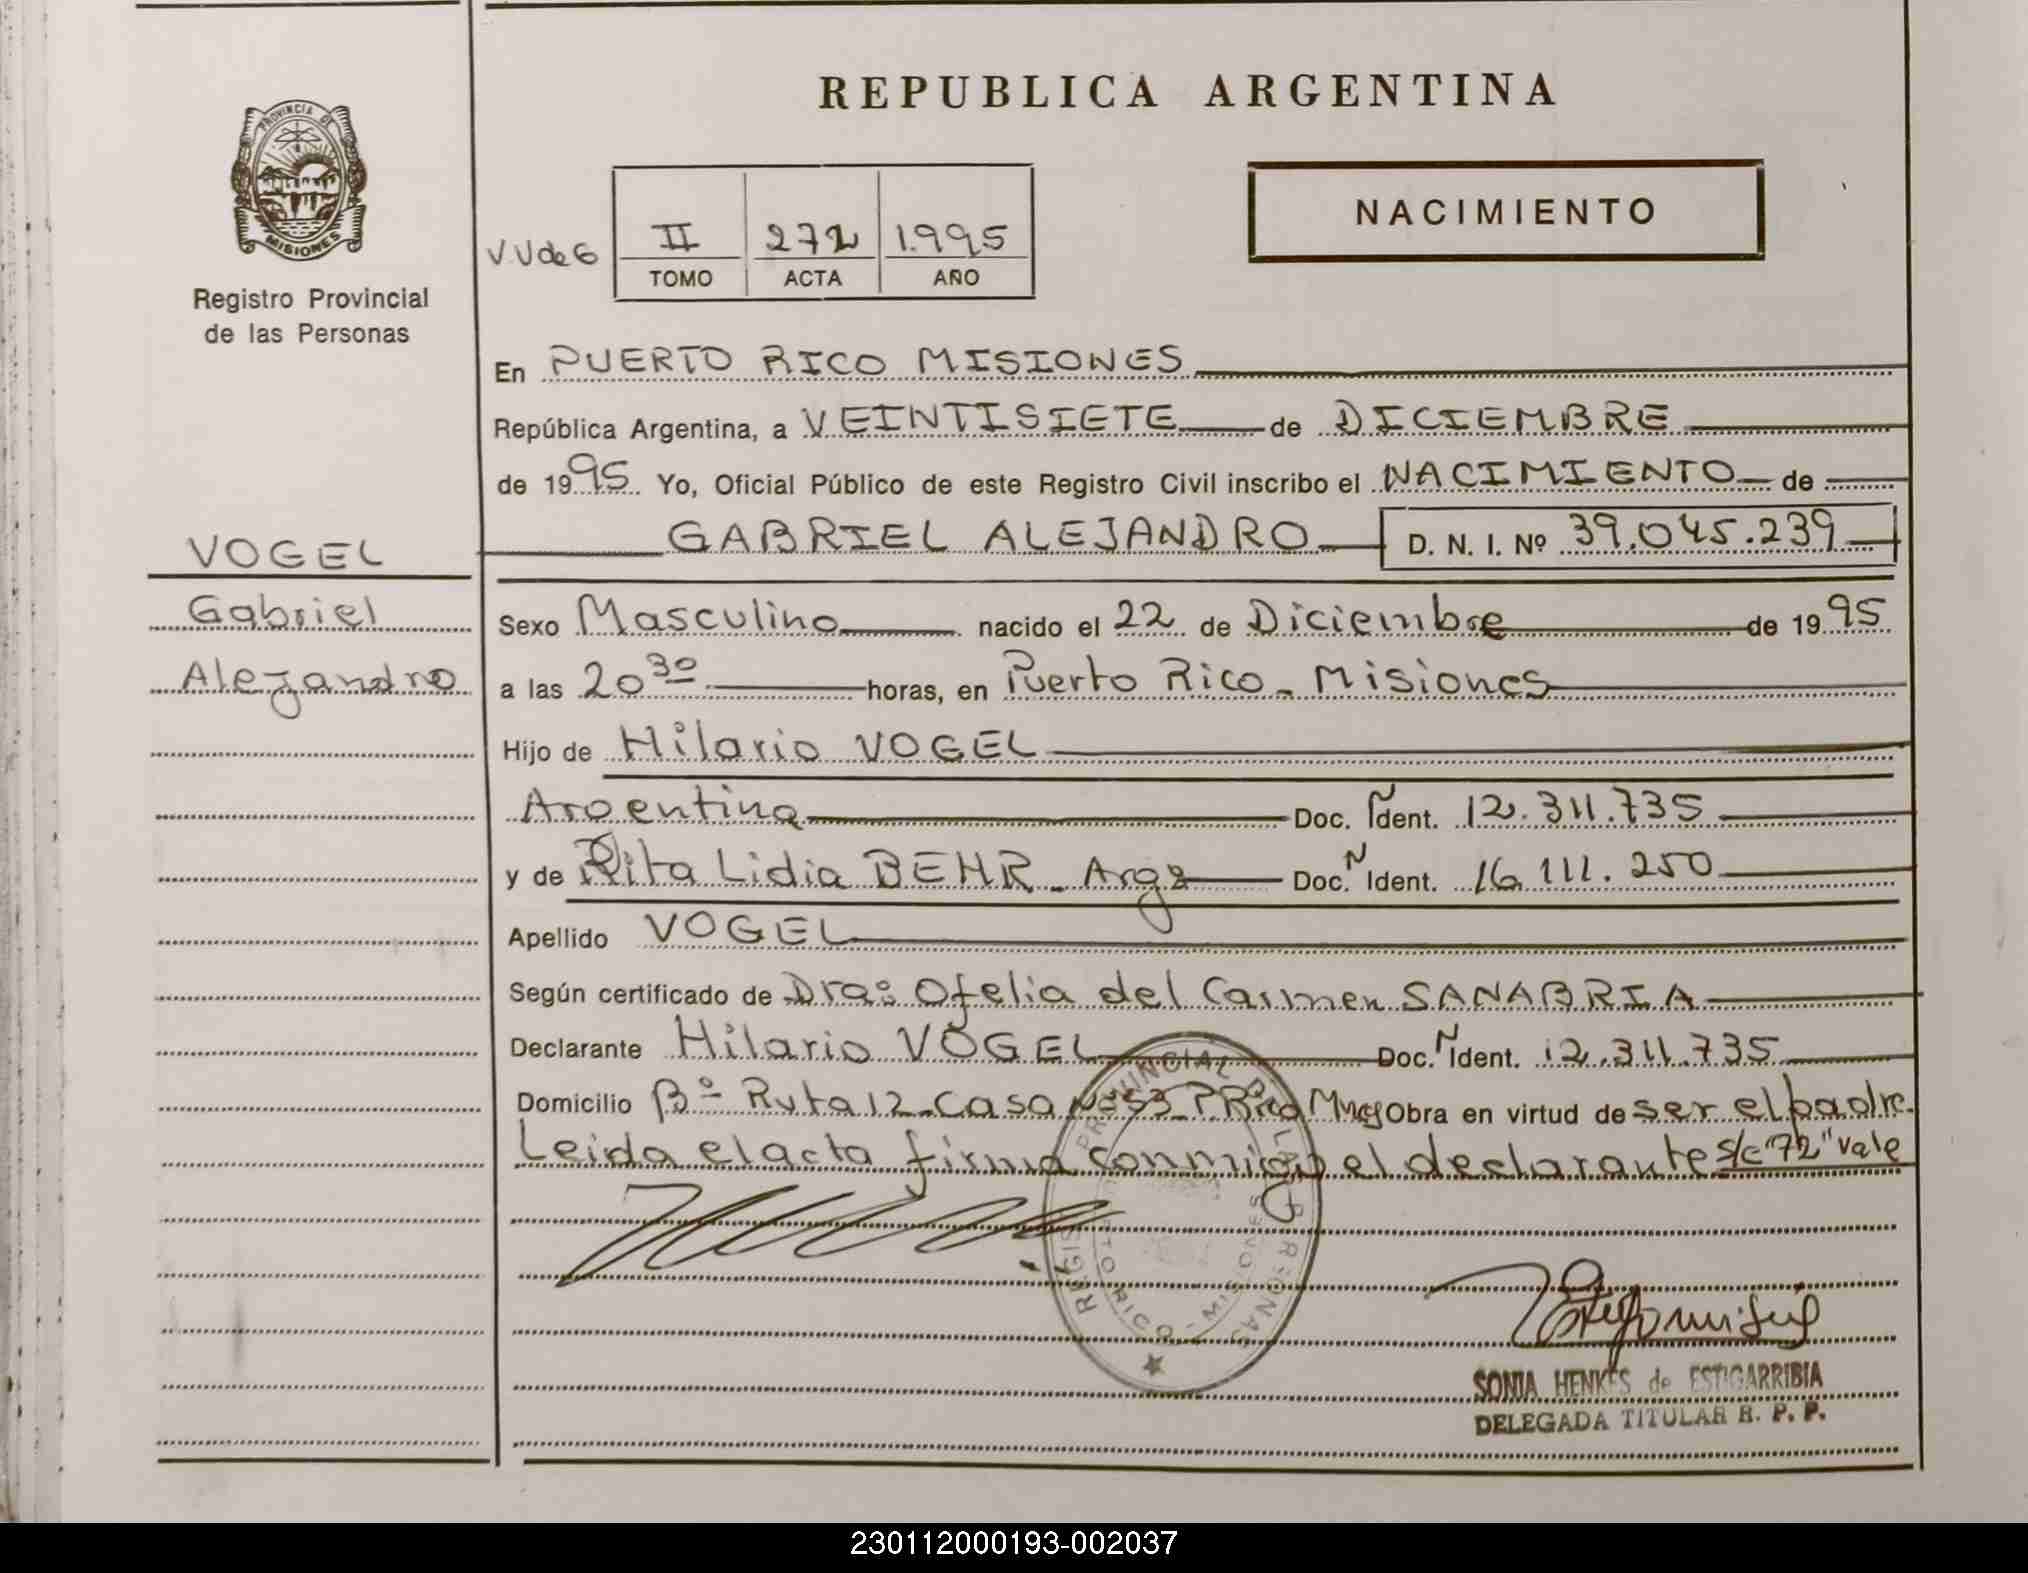 REPUBLICA ARGENTINA
PROVINCIA DE
MISIONES
Registro Provincial
de las Personas
NACIMIENTO
V.V de G
II 272 1.995
TOMO ACTA AÑO
En PUERTO RICO MISIONES
República Argentina, a VEINTISIETE de DICIEMBRE
de 1995 Yo, Oficial Público de este Registro Civil inscribo el NACIMIENTO de
GABRIEL ALEJANDRO D. N. I. Nº 39.045.239
VOGEL
Gabriel
Alejandro
Sexo Masculino nacido el 22 de Diciembre de 1995
a las 20 30 horas, en Puerto Rico - Misiones
Hijo de Hilario VOGEL
Argentina Doc. Ident. 12.311.735
y de Rita Lidia BEHR - Arg Doc. Ñ Ident. 16.111.250
Apellido VOGEL
Según certificado de Dra: Ofelia del Carmen SANABRIA
Declarante Hilario VOGEL Doc. Ñ Ident. 12.311.735
Domicilio Bº Ruta 12 - Casa Nº 53 - P Rico Obra en virtud de ser el padre.
Leida el acta firma conmigo el declarante s/c "72" vale
REGISTRO PROVINCIAL DE LAS PERSONAS
PTO RICO - MISIONES
SONIA HENKES de ESTIGARRIBIA
DELEGADA TITULAR R. P. P.
230112000193-002037